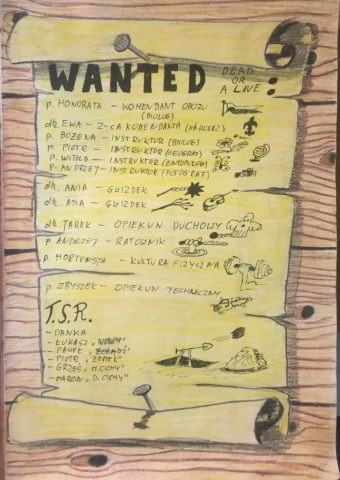 WANTED
DEAD
OR
A LIVE:
p. HONORATA - KOMENDANT OBOZU
(BIOLOG)
dh. EWA - Z-CA KOMENDANTA (HARCERZ)
p. BOŻENA - INSTRUKTOR (BIOLOG)
p. PIOTR - INSTRUKTOR (GEOGRAF)
p. WITOLD - INSTRUKTOR (ENTOMOLOG)
p. ANDRZEJ - INSTRUKTOR (FOTOGRAF)
dh. ANIA - GWIZDEK
dh. ASIA - GWIZDEK
dh. JAREK - OPIEKUN DUCHOWY
p. ANDRZEJ - RATOWNIK
p. HORTENSJA - KULTURA FIZYCZNA
p. ZBYSZEK - OPIEKUN TECHNICZNY
T.S.R.
- DANKA
- ŁUKASZ „NOWY"
- PAWEŁ „ŻOŁĄDŹ"
- PIOTR „ZOMEK"
- GRZEŚ „M. CICHY"
- MARCIN „D. CICHY"